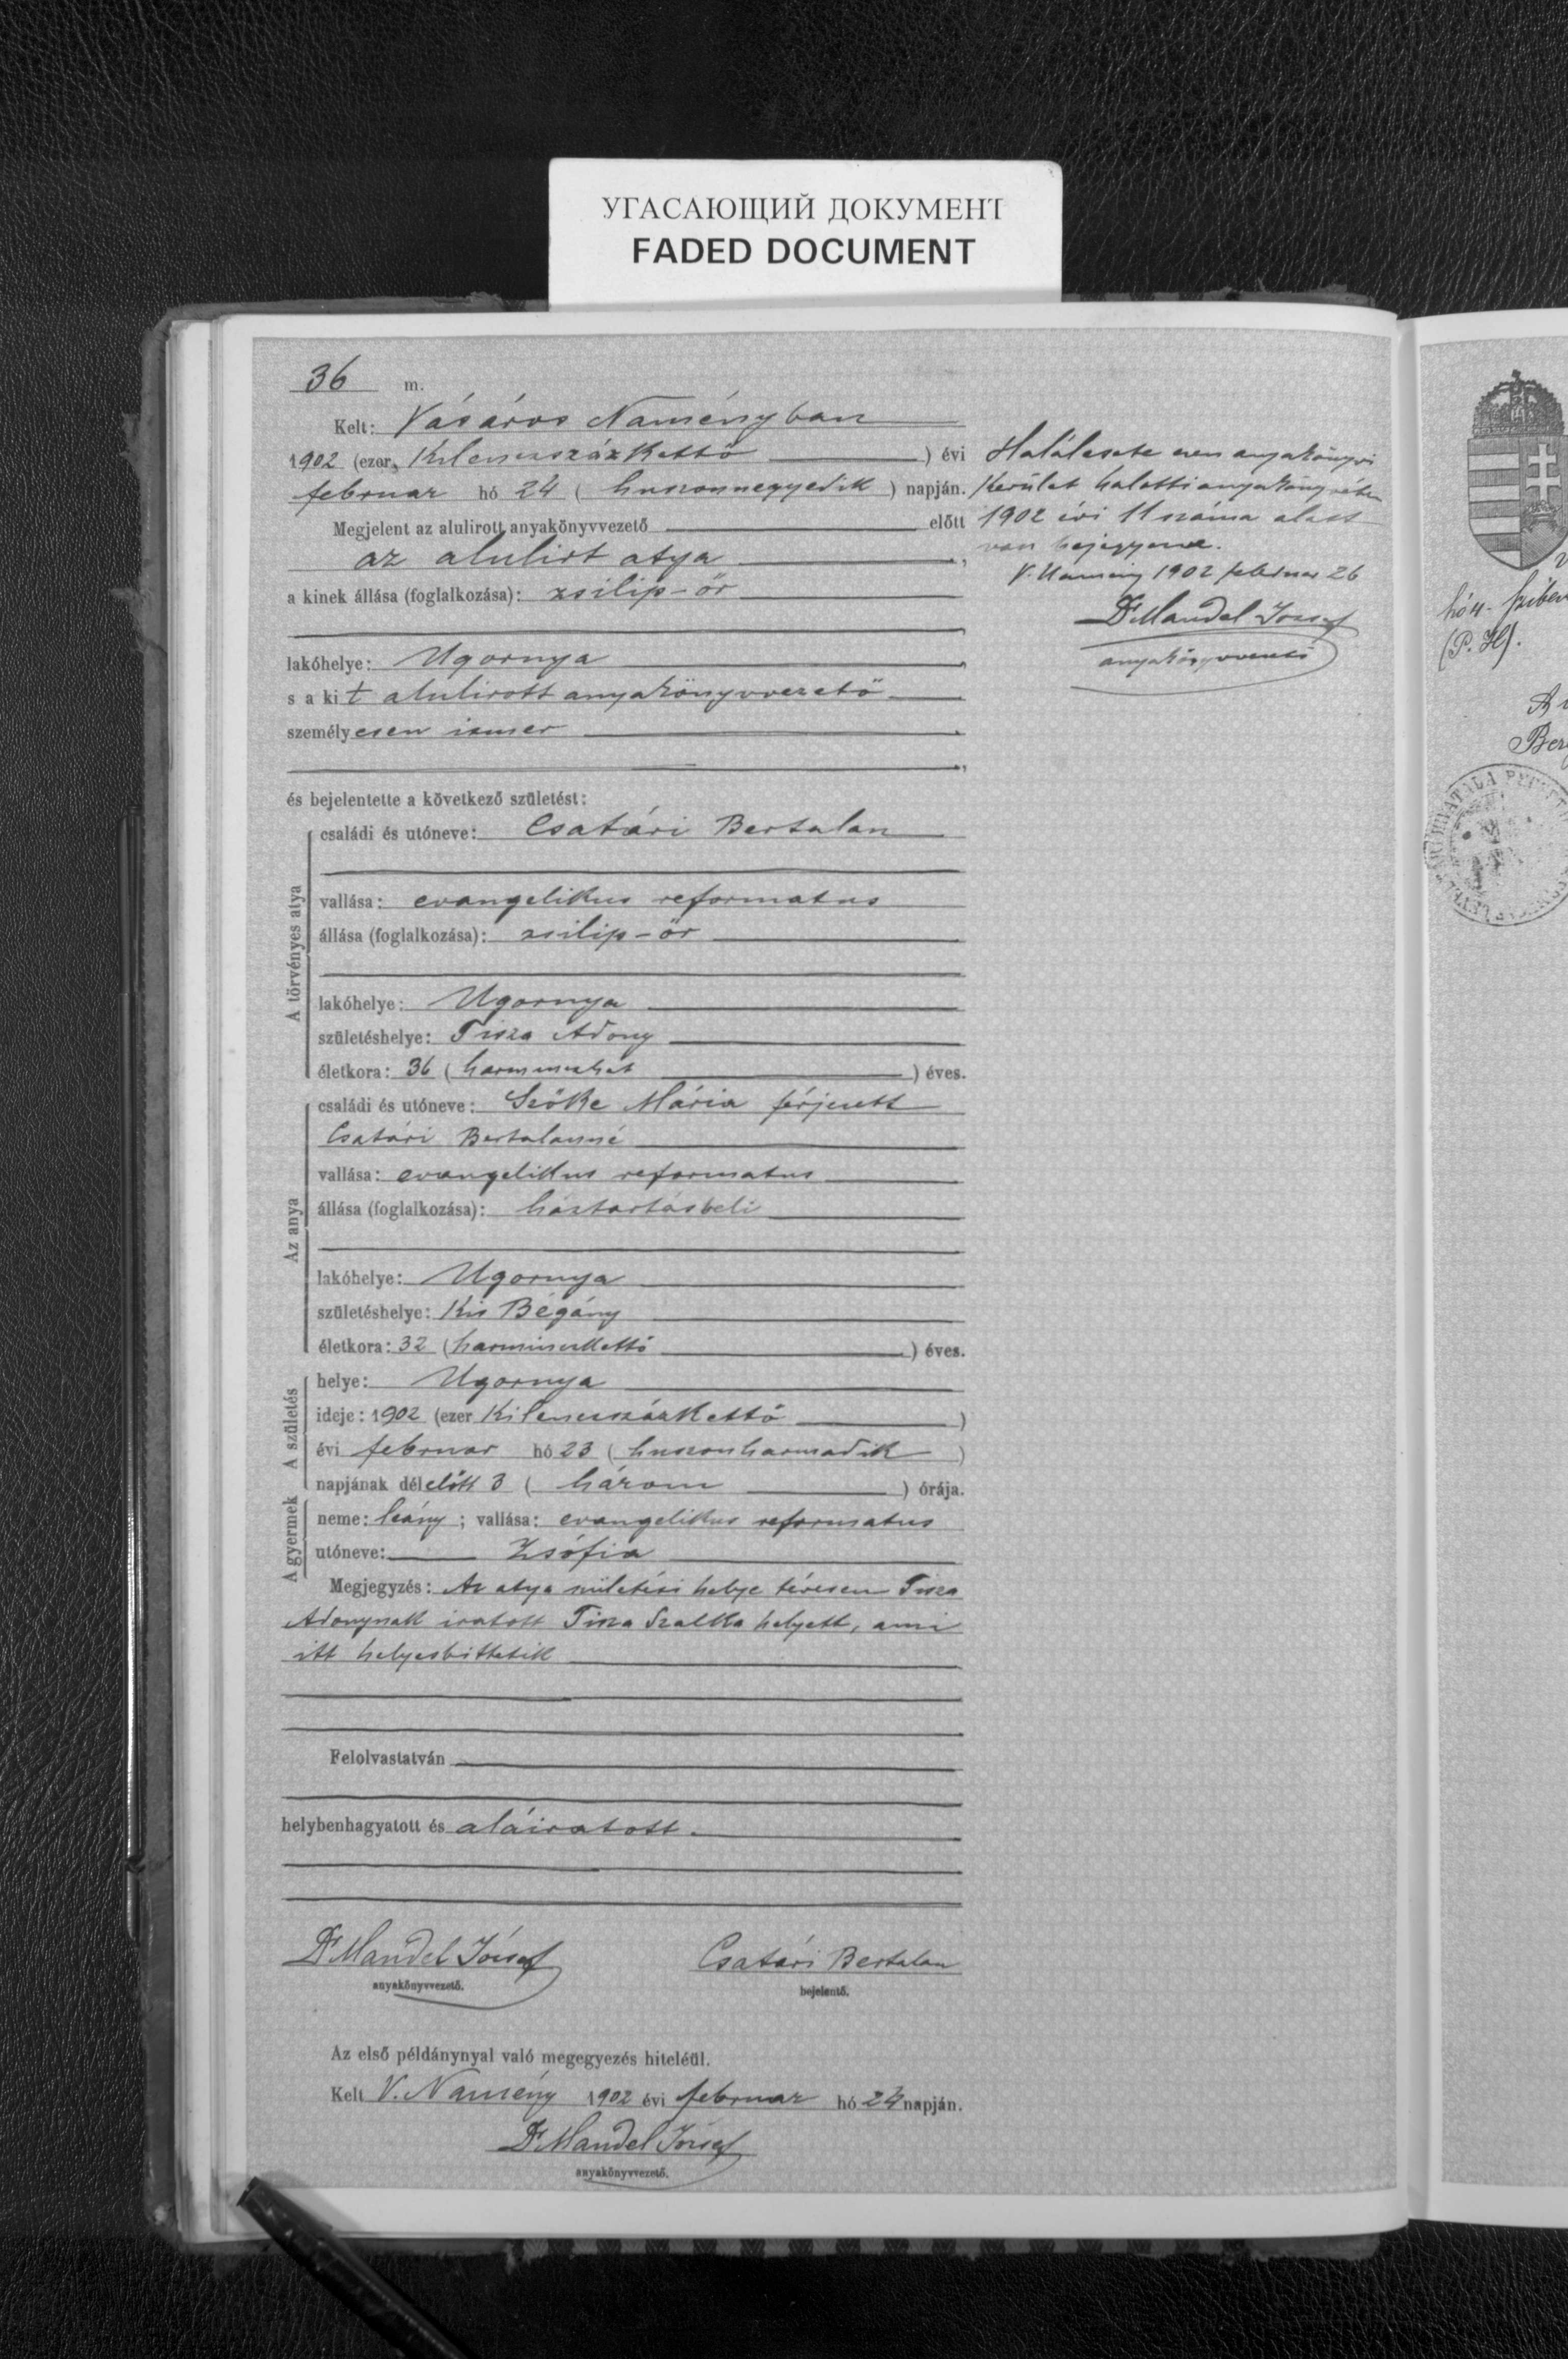 УГАСАЮЩИЙ ДОКУМЕНТ
FADED DOCUMENT
36 m.
Kelt: Vásáros Naményban
1902 (ezer Kilencszázkettő ) évi
februar hó 24 ( huszonnegyedik ) napján.
Megjelent az alulirott anyakönyvvezető előtt
az alulirt atya ,
a kinek állása (foglalkozása): zsilip-őr
,
lakóhelye: Ugornya ,
s a kit alulirott anyakönyvvezető
személyesen ismer
,
és bejelentette a következő születést:
A törvényes atya
családi és utóneve: Csatári Bertalan
vallása: evangelikus reformatus
állása (foglalkozása): zsilip-őr
lakóhelye: Ugornya
születéshelye: Tisza Adony
életkora: 36 ( harminczhat ) éves.
Az anya
családi és utóneve: Szőke Mária férjezett
Csatári Bertalanné
vallása: evangelikus reformatus
állása (foglalkozása): háztartásbeli
lakóhelye: Ugornya
születéshelye: Kis Bégány
életkora: 32 (harminczkettő ) éves.
A születés
helye: Ugornya
ideje: 1902 (ezer Kilencszázkettő )
évi februar hó 23 ( huszonharmadik )
napjának délelőtt 3 ( három ) órája.
A gyermek
neme: leány ; vallása: evangelikus reformatus
utóneve: Zsófia
Megjegyzés: Az atya születési helye tévesen Tisza
Adonynak iratott Tisza Szalka helyett, ami
itt helyesbittetik
Felolvastatván
helybenhagyatott és aláiratott.
Dr Mandel József
anyakönyvvezető.
Csatári Bertalan
bejelentő.
Az első példánynyal való megegyezés hiteléül.
Kelt V. Namény 1902 évi februar hó 24 napján.
Dr Mandel József
anyakönyvvezető.
Halálesete ezen anyakönyvi
kerület halotti anyakönyvében
1902 évi 11 száma alatt
van bejegyezve.
V. Namény 1902 februar 26
Dr Mandel József
anyakönyvvezető
(P. H).